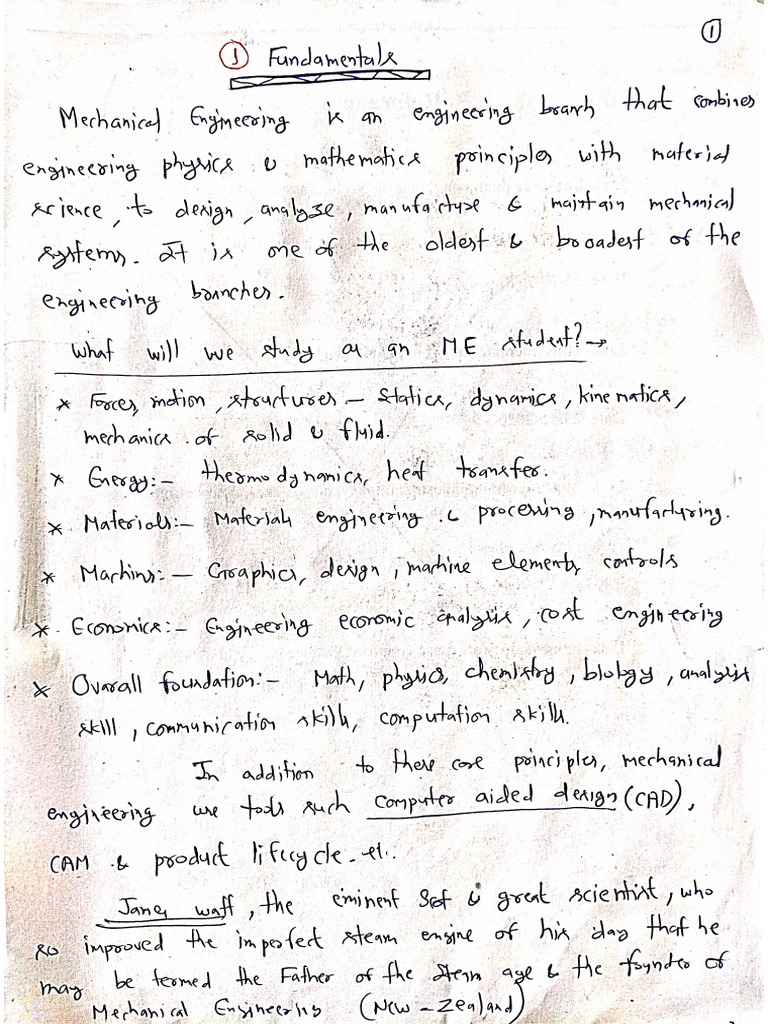 1
1 Fundamentals
Mechanical Engineering is an engineering branh that combines
engineering physics & mathematics principles with material
science, to design, analyze, manufacture & maintain mechanical
systems. It is one of the oldest & broadest of the
engineering branches.
What will we study as an ME student?→
* Forces, motion, structures – Statics, dynamics, kinematics,
mechanics of solid & fluid.
* Energy:- thermodynamics, heat transfer.
* Materials:- Materials engineering & processing, manufacturing.
* Machins:- Graphics, design, machine elements, controls
* Economics:- Engineering economic analysis, cost engineering
* Ovarall foundation:- Math, physics, chemistry, biology, analysis
skill, communication skills, computation skills.
In addition to these core principles, mechanical
engineering use tools such computer aided design (CAD),
CAM & product lifecycle. et.
James watt, the eminent & great scientist, who
so improved the imperfect steam engine of his day that he
may be termed the Father of the steam age & the founder of
Mechanical Engineering (New-Zealand)